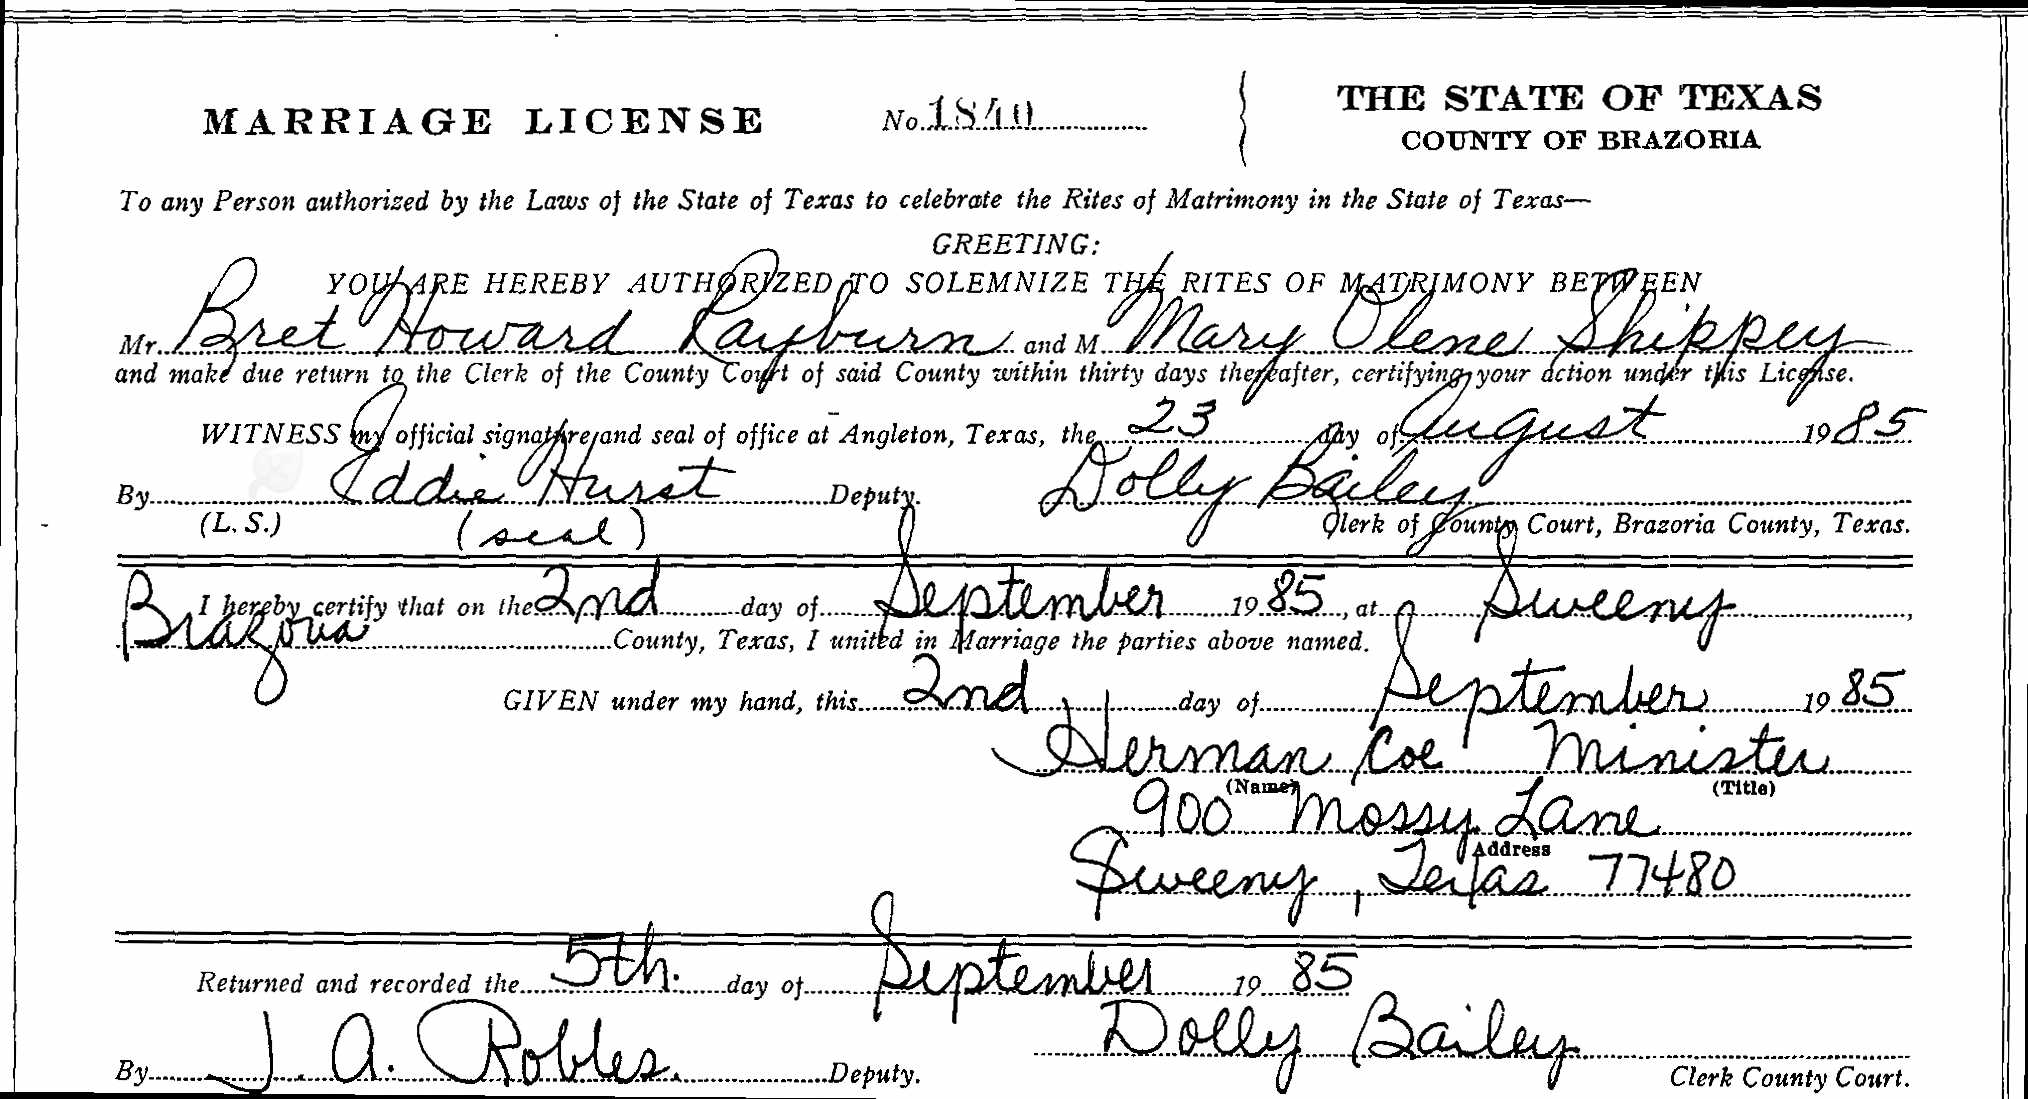 MARRIAGE LICENSE No. 1840 THE STATE OF TEXAS
COUNTY OF BRAZORIA
To any Person authorized by the Laws of the State of Texas to celebrate the Rites of Matrimony in the State of Texas—
GREETING:
YOU ARE HEREBY AUTHORIZED TO SOLEMNIZE THE RITES OF MATRIMONY BETWEEN
Mr. Bret Howard Rayburn and M. Mary Olene Shippey
and make due return to the Clerk of the County Court of said County within thirty days thereafter, certifying your action under this License.
WITNESS my official signature and seal of office at Angleton, Texas, the 23 day of August 1985
By Eddie Hurst Deputy. Dolly Bailey
(L. S.) (seal) Clerk of County Court, Brazoria County, Texas.
I hereby certify that on the 2nd day of September 1985, at Sweeny,
Brazoria County, Texas, I united in Marriage the parties above named.
GIVEN under my hand, this 2nd day of September 1985
Herman Coe Minister
(Name) (Title)
900 Mossy Lane
Address
Sweeny, Texas 77480
Returned and recorded the 5th. day of September 1985
By J. A. Robles. Deputy. Dolly Bailey
Clerk County Court.